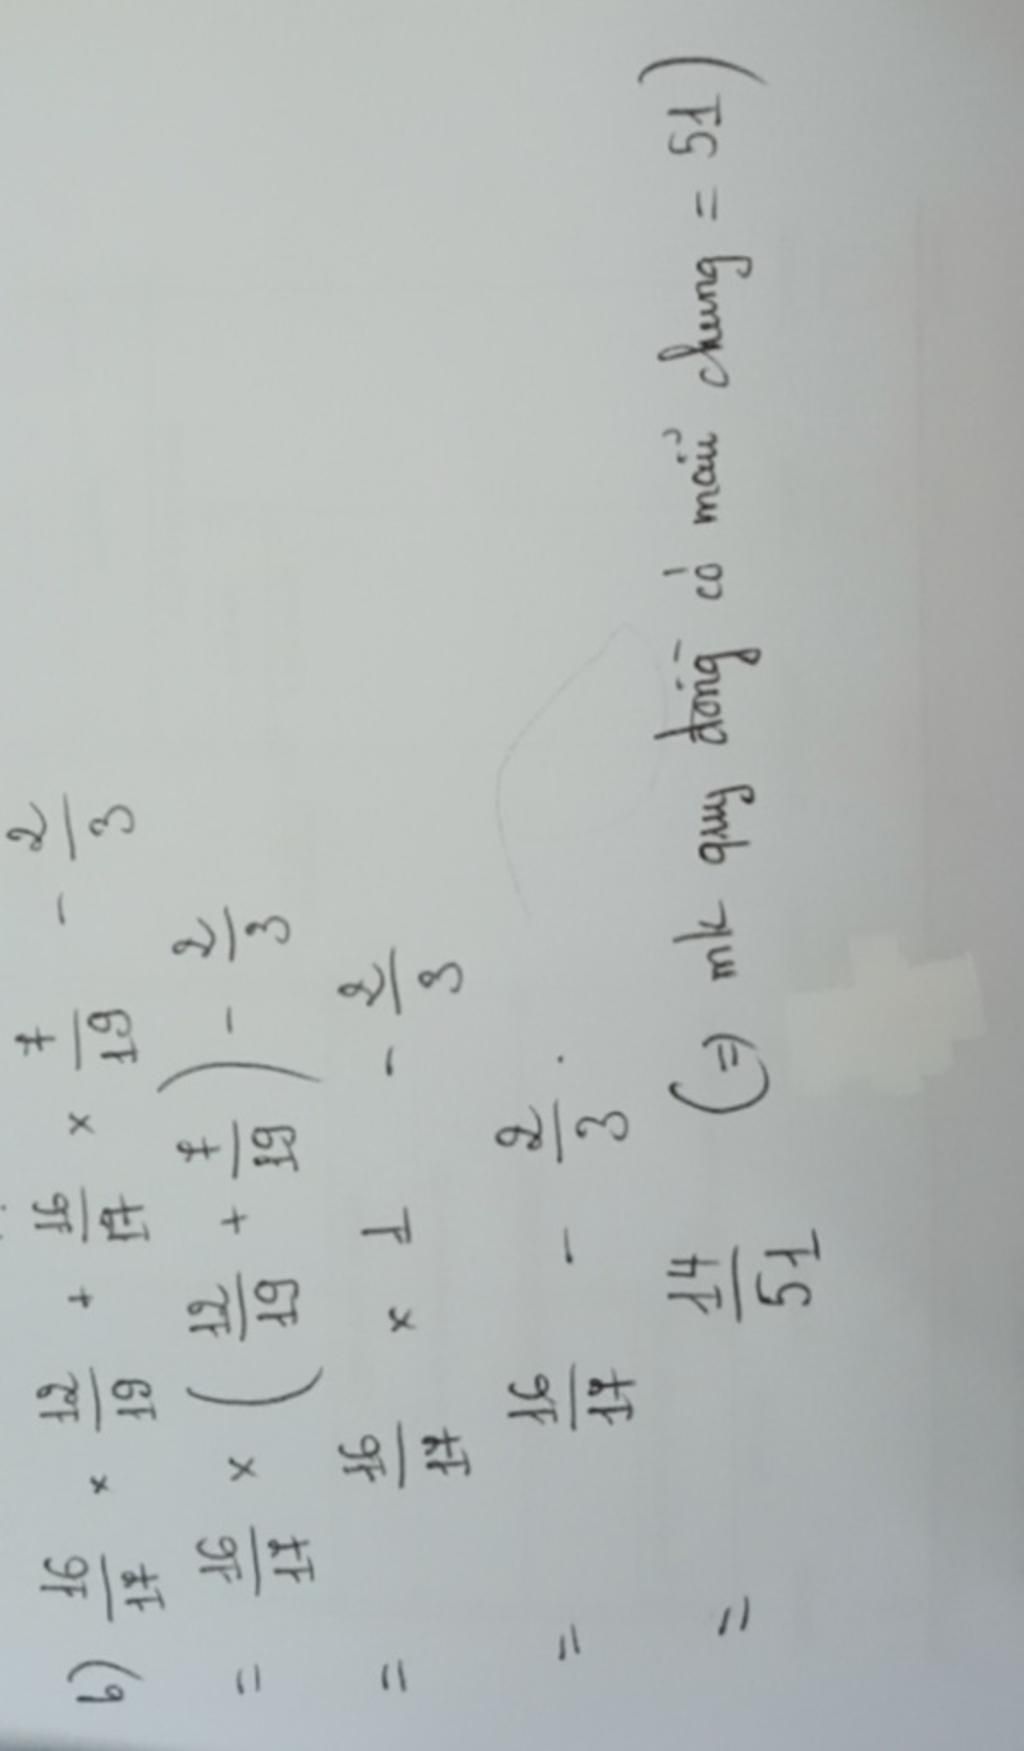 b) 16/17 × 12/19 + 16/17 × 7/19 - 2/3
= 16/17 × ( 12/19 + 7/19 ) - 2/3
= 16/17 × 1 - 2/3
= 16/17 - 2/3 .
= 14/51 (=) mk quy đồng có mẫu chung = 51 )